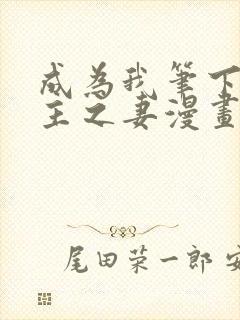 成為我筆下
主之妻漫畫
尾田荣一郎 安